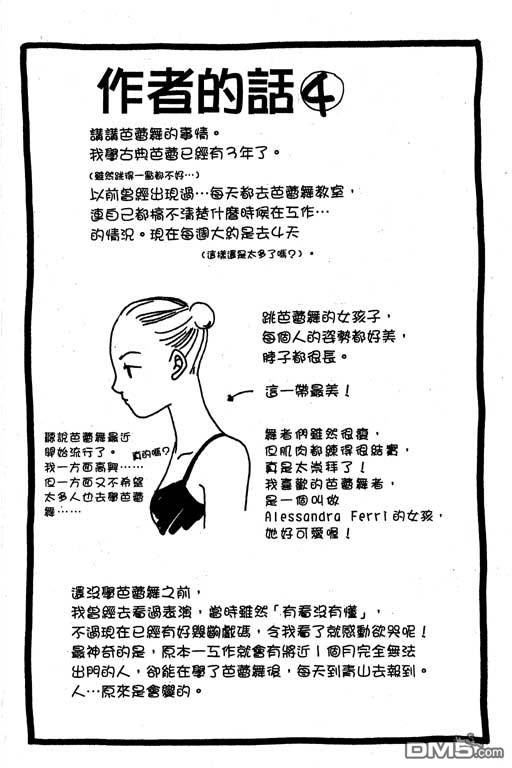 作者的話④
講講芭蕾舞的事情。
我學古典芭蕾已經有3年了。
(雖然跳得一點都不好…)
以前曾經出現過…每天都去芭蕾舞教室,
連自己都搞不清楚什麼時候在工作…
的情況。現在每週大約是去4天
(這樣還是太多了嗎?)。
跳芭蕾舞的女孩子,
每個人的姿勢都好美,
脖子都很長。
這一帶最美!
聽說芭蕾舞最近
開始流行了。
真的嗎?
我一方面高興……
但一方面又不希望
太多人也去學芭蕾
舞……
舞者們雖然很瘦,
但肌肉都練得很結實,
真是太崇拜了!
我喜歡的芭蕾舞者,
是一個叫做
Alessandra Ferri的女孩,
她好可愛喔!
還沒學芭蕾舞之前,
我曾經去看過表演,當時雖然「有看沒有懂」,
不過現在已經有好幾齣戲碼,令我看了就感動欲哭呢!
最神奇的是,原本一工作就會有將近1個月完全無法
出門的人,卻能在學了芭蕾舞後,每天到青山去報到。
人…原來是會變的。
DM5.com